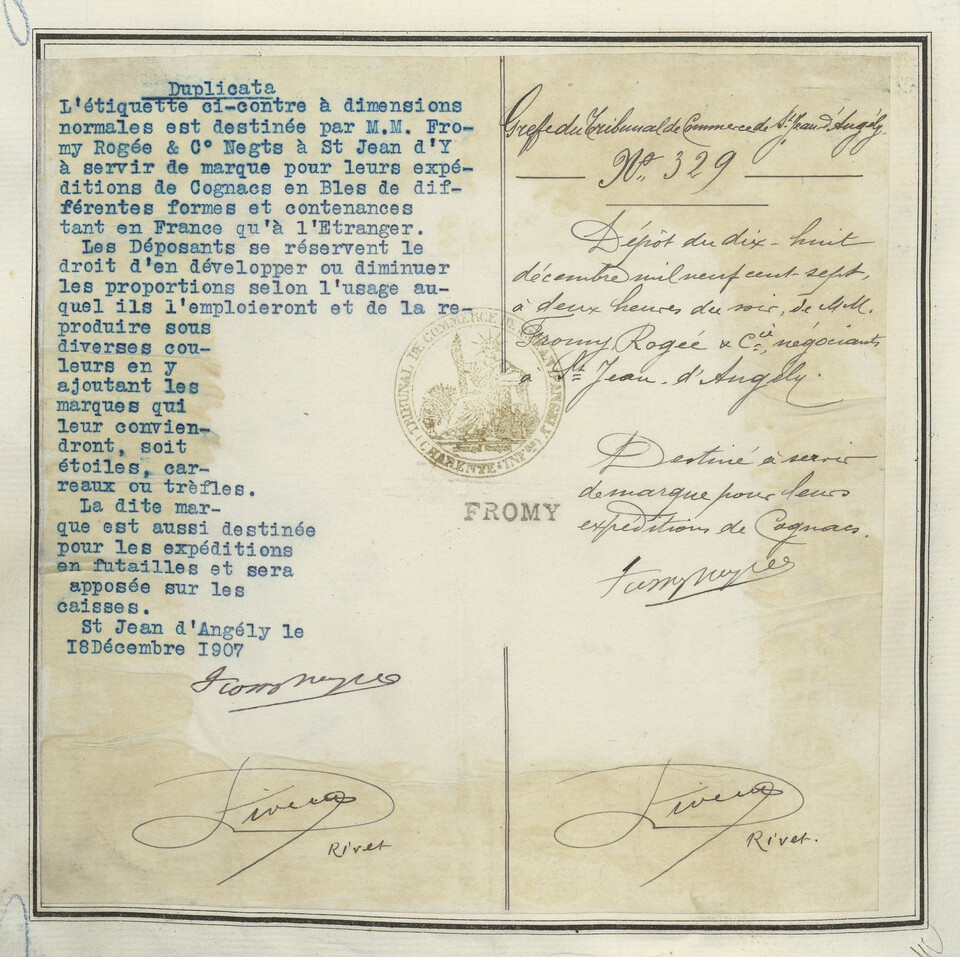 Duplicata
L'étiquette ci-contre à dimensions
normales est destinée par M.M. Fro-
my Rogée & C° Negts à St Jean d'Y
à servir de marque pour leurs expé-
ditions de Cognacs en Bles de dif-
férentes formes et contenances
tant en France qu'à l'Etranger.
Les Déposants se réservent le
droit d'en développer ou diminuer
les proportions selon l'usage au-
quel ils l'emploieront et de la re-
produire sous
diverses cou-
leurs en y
ajoutant les
marques qui
leur convien-
dront, soit
étoiles, car-
reaux ou trèfles.
La dite mar-
que est aussi destinée
pour les expéditions
en futailles et sera
apposée sur les
caisses.
St Jean d'Angély le
I8Décembre I907
Fromy Rogée
Rivet
TRIBUNAL DE COMMERCE DE ST JEAN D'ANGELY
(CHARENTE-INFRE)
FROMY
Greffe du Tribunal de Commerce de St Jean d'Angély.
No. 329
Dépôt du dix-huit
décembre mil neuf cent sept,
à deux heures du soir, de M.M.
Fromy, Rogée & Cie, négociants
à St Jean-d'Angély.
Destiné à servir
de marque pour leurs
expéditions de Cognacs.
Fromy Rogée
Rivet.